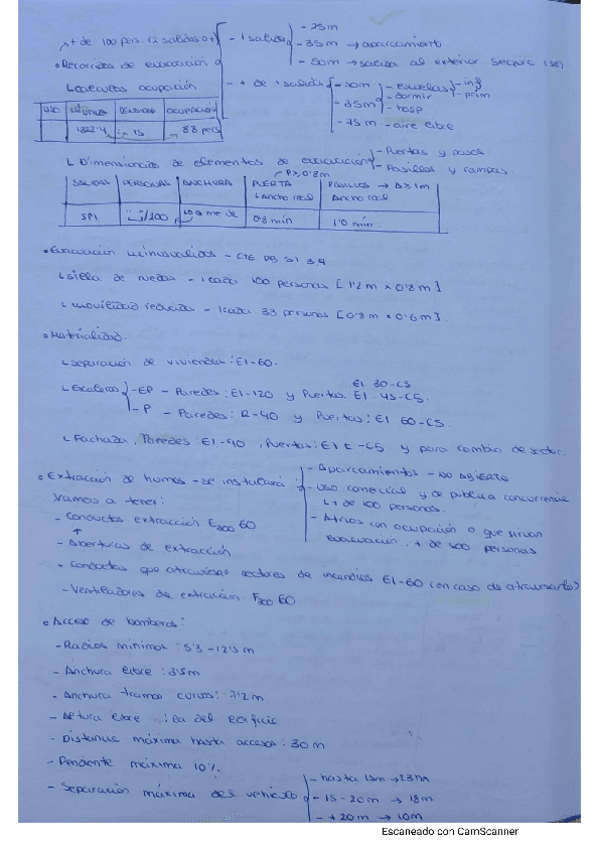 + de 100 pers. (2 salidas) - 1 salida
- 25m
- 35m → aparcamiento
- 50m → salida al exterior segura (SE)
• Recorridos de evacuación
- + de 1 salida
- 50m - escuelas - inf - prim
- 35m - dormir - hosp
- 75m - aire libre
L Cálculos ocupación
USO DENSIDAD OCUPACIÓN
15 88 pers
L Dimensionado de elementos de evacuación - Puertas y pasos
- Pasillos y rampas
P≥0'8m
SALIDAS PERSONAS ANCHURA PUERTA PASILLOS → A≥1m
Ancho real Ancho real
SP1 /200 0'8 min 1'0 min
• Evacuación minusvalidos - CTE DB SI 3.9
L Silla de ruedas - 1 cada 100 personas [1'2 m x 0'8 m]
L movilidad reducida - 1 cada 33 personas [0'8 m x 0'6 m].
• Materialidad.
L separación de viviendas: EI-60.
EI 30-C5
L Escaleras - EP - Paredes: EI-120 y Puertas: EI 45-C5.
- P - Paredes: R-90 y Puertas: EI 60-C5.
L Fachada, Paredes: EI-90, Puertas: EI t - C5 y para cambio de sector.
• Extracción de humos - se instalará - Aparcamientos - NO ABIERTO
- Uso comercial y de publica concurrencia
L + de 400 personas.
Vamos a tener:
- Atrios con ocupación o que sirvan
evacuación: + de 400 personas
- Conductos extracción E300 60
- Aberturas de extracción
- Conductos que atraviesen sectores de incendios EI-60 (en caso de atravesarlos)
- Ventiladores de extracción F300 60
• Acceso de bomberos:
- Radios mínimos: 5'3 - 12'5 m
- Anchura libre: 3'5m
- Anchura tramos curvos: 7'2 m
- Altura libre: la del edificio
- Distancia máxima hasta accesos: 30 m
- Pendiente máxima 10%.
- Separación máxima del vehículo - hasta 15m → 23m
- 15-20m → 18m
- +20m → 10m
Escaneado con CamScanner